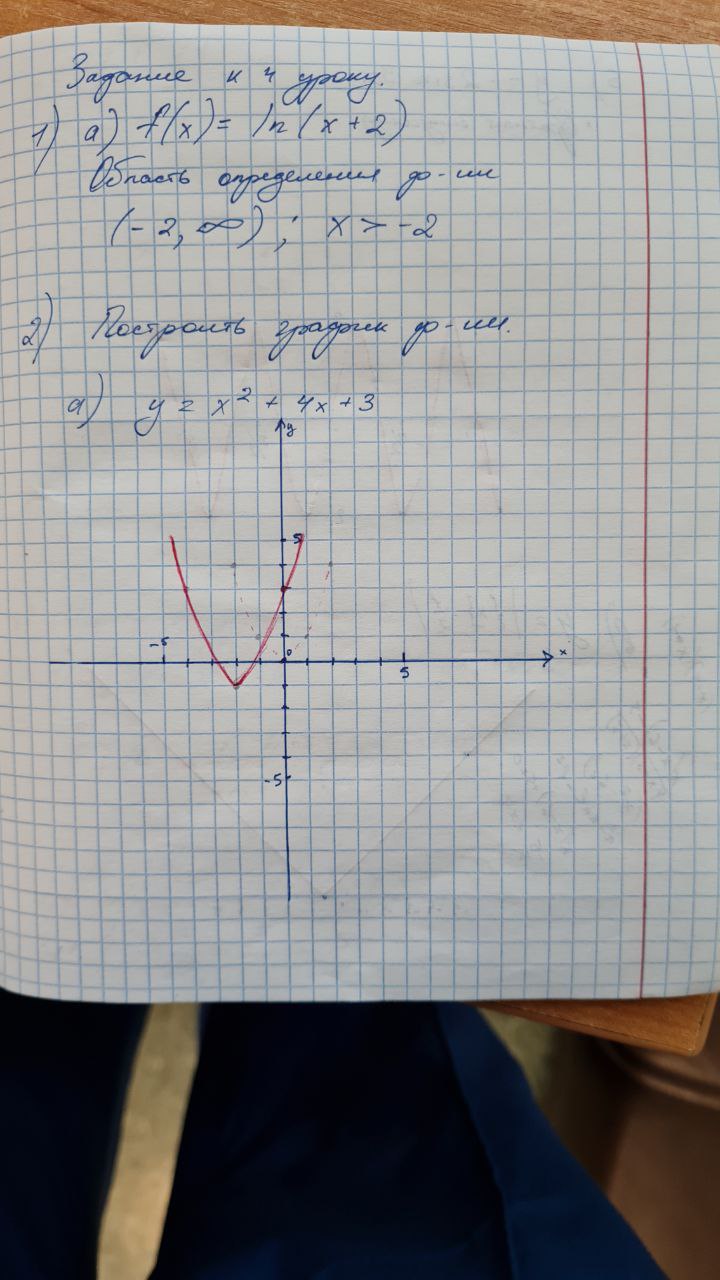 Задание к 4 уроку.
1) а) f(x) = ln(x+2)
Область определения ф-ии
(-2, ∞) ; x > -2
2) Построить график ф-ии.
а) y = x² + 4x + 3
y
5
-5
0
x
5
-5